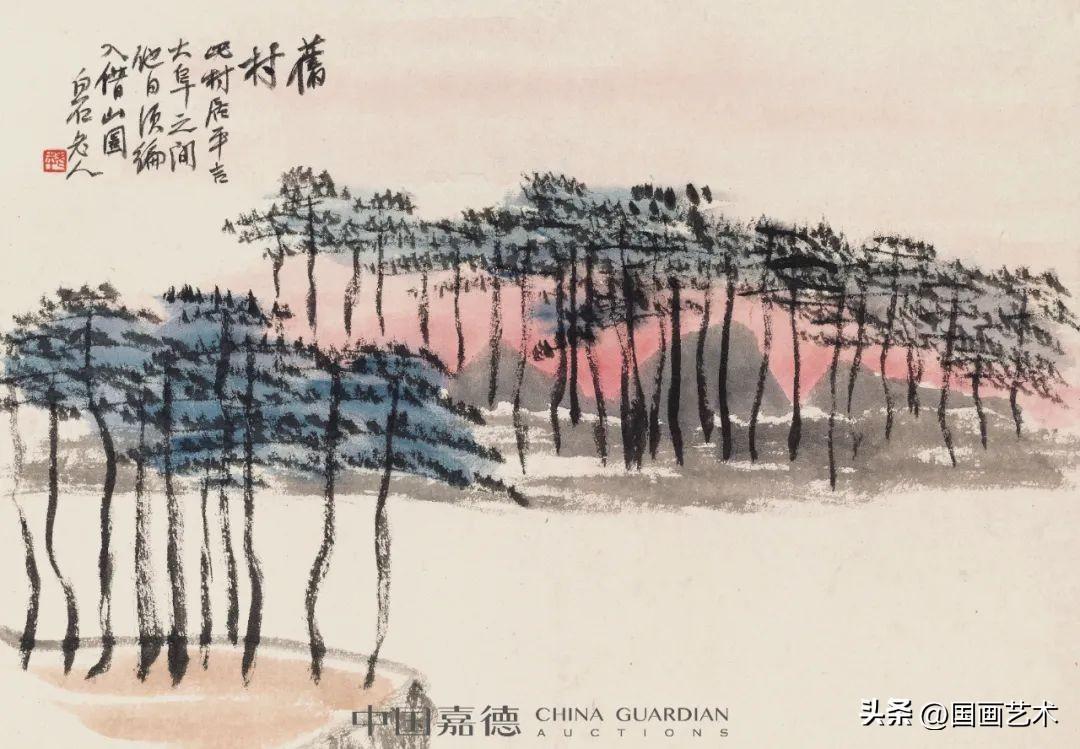 舊
村
此村居平
大阜之間
他日須編
入借山圖
白石老人
中国嘉德 CHINA GUARDIAN
AUCTIONS
头条 @国画艺术